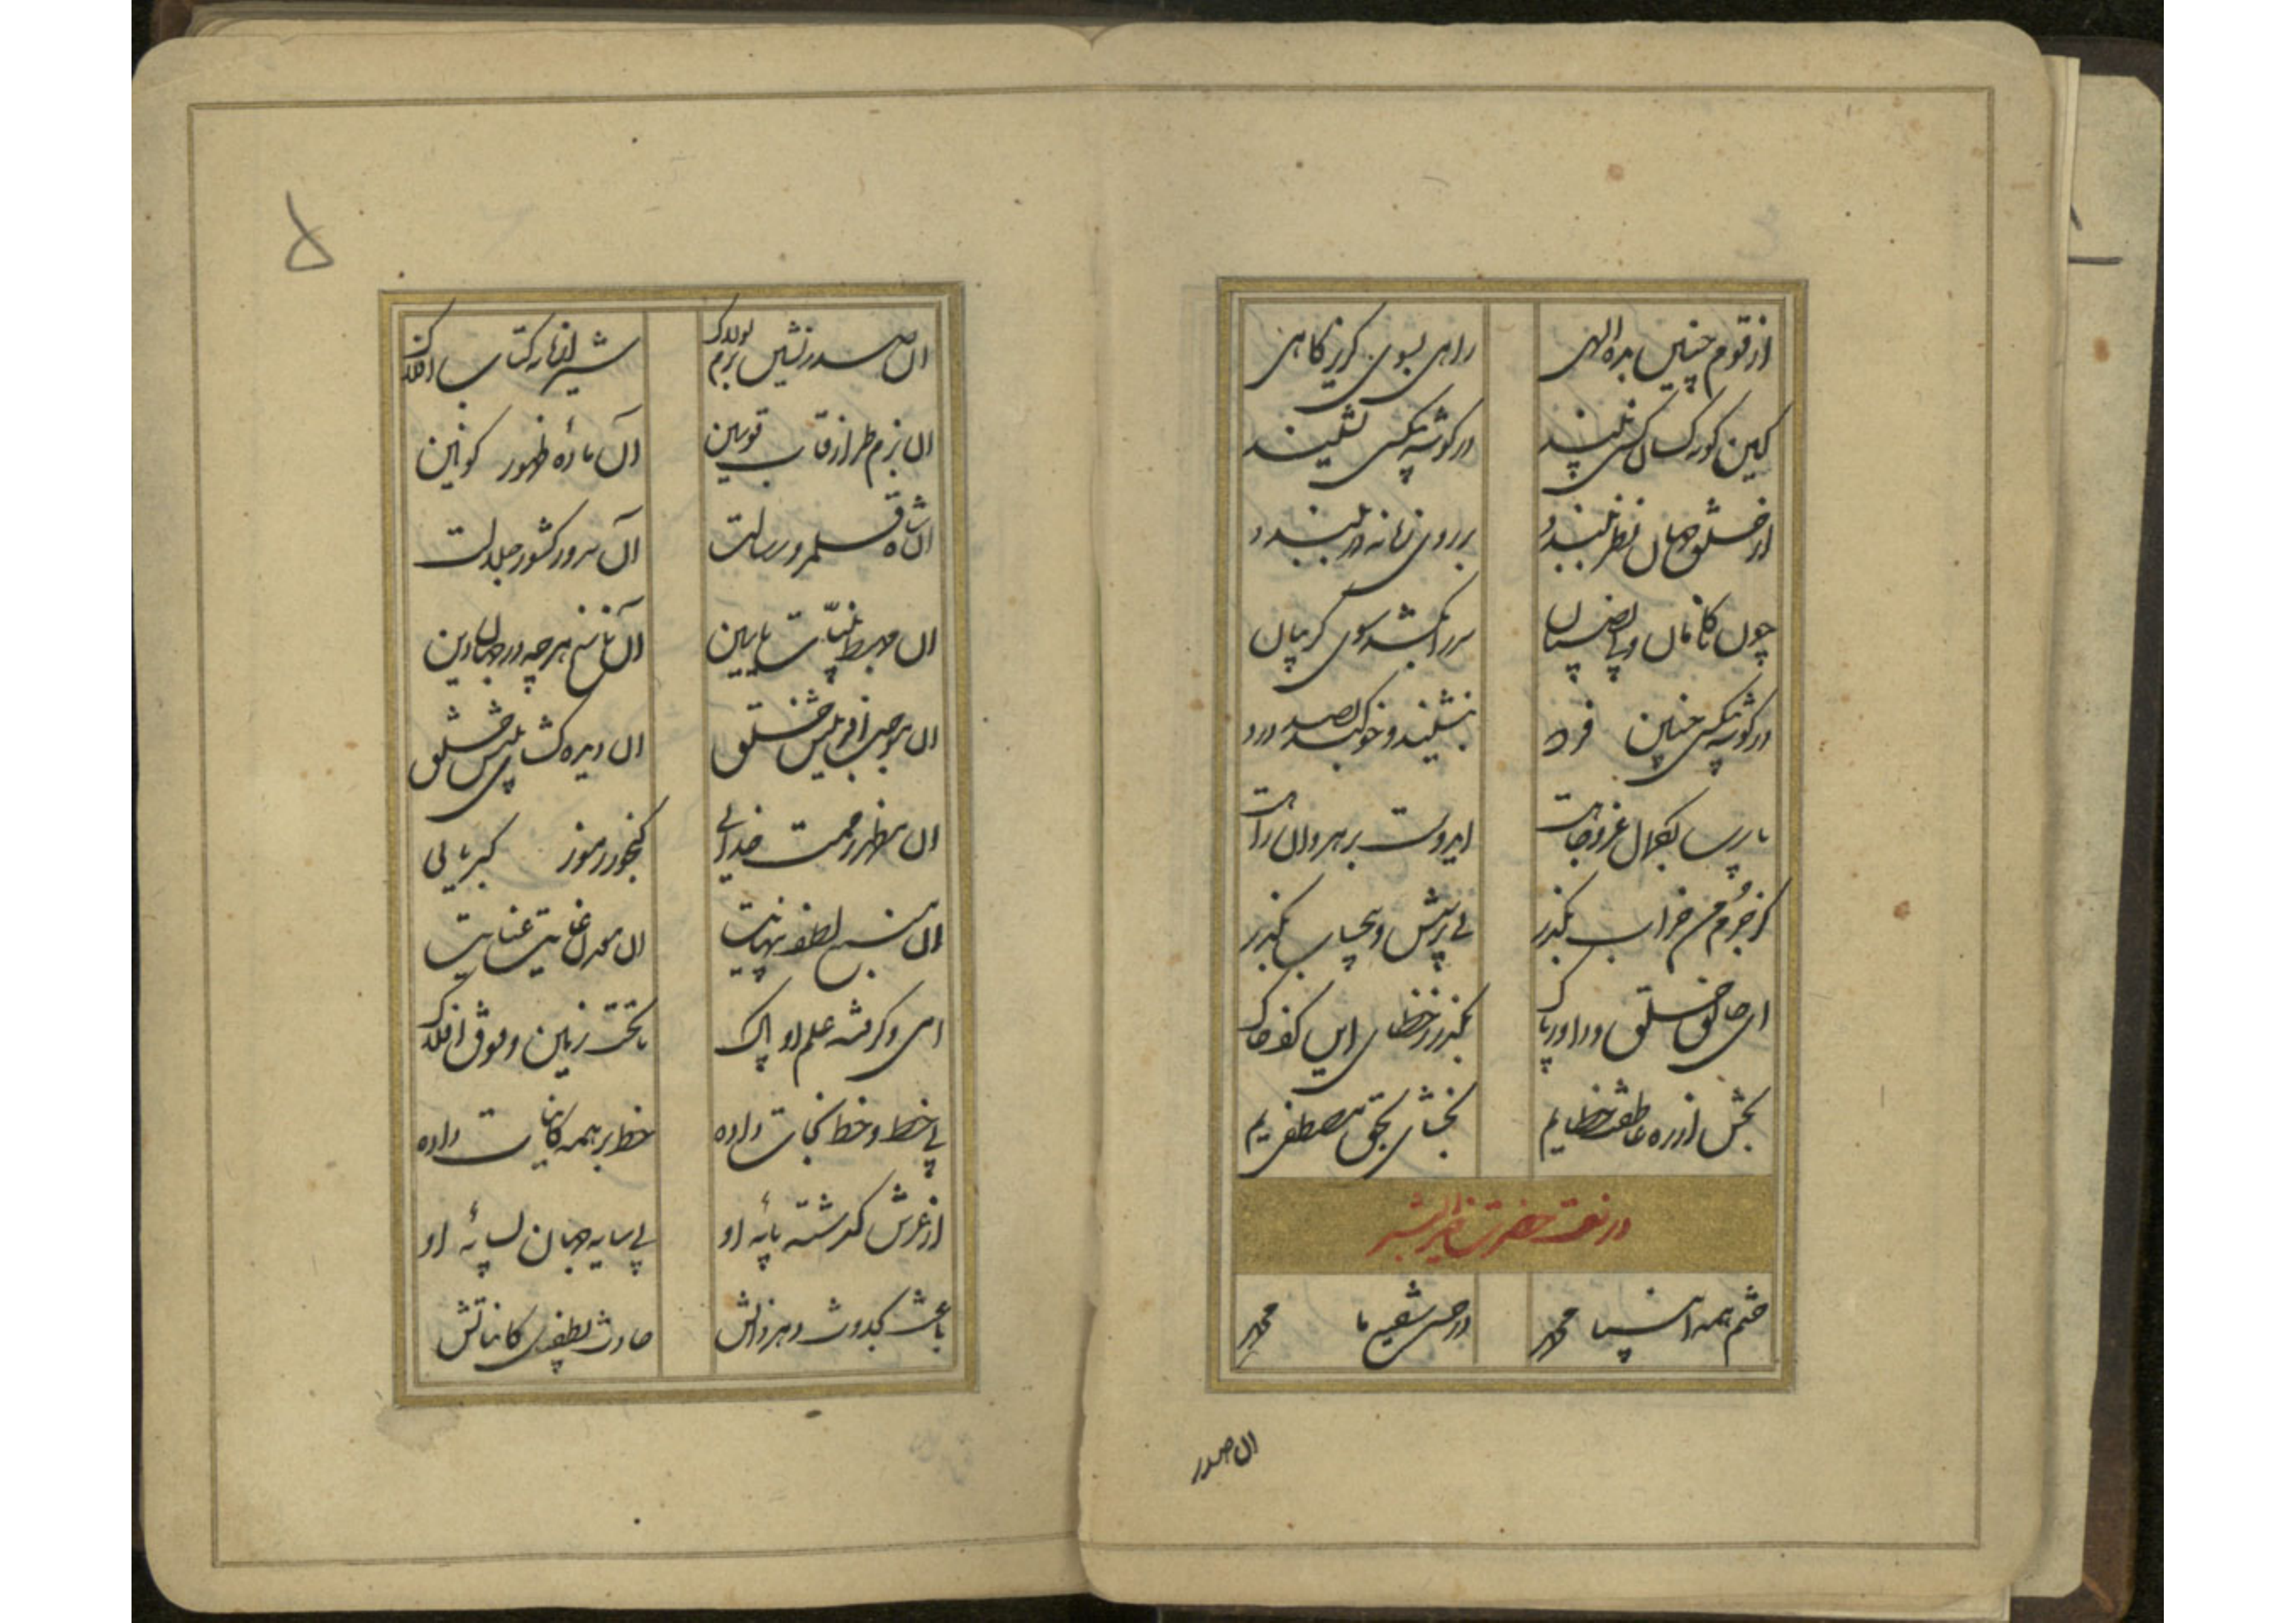 از قوم چنین بده الهی راهی بسوی گریزگاهی
کین کور کسان کس نبیند در گوشه بیکسی نشیند
از خلق جهان نظر ببندد بر روی زمانه در ببندد
چون کامان و بی نصیبان سر را بکشد سوی گریبان
در گوشه بیکسی چنین فرد بنشیند و خو کند بصد درد
یا رب بکمال عز و جاهت امید است بر هروان راهت
کز جرم من خراب بگذر بی پرسش و بیحساب بگذر
ای خالق خلق و داور پاک بگذر ز خطای این کف خاک
بخش از ره عاطفت خطایم بخشای بحق مصطفایم
در نعت حضرت خیر البشر
ختم همه انبیا محمد در حشر شفیع ما محمد
ان صدر
۵
ان صدر نشین بزم لولاک شیرازه کتاب افلاک
ان بزم طراز قاب قوسین آن ماده ظهور کونین
ان شاه قلمرو رسالت آن سرور کشور جلالت
ان مهبط بینات یاسین آن ناسخ هر چه در جهان دین
ان موجب آفرینش خلق ان دیده گشای بینش خلق
ان مظهر رحمت خدائی گنجور رموز کبریایی
ان منبع لطف بی نهایت ان معدن غایت عنایت
امی و گرفته علم او پاک تا تحت زمین و فوق افلاک
بی خط و خط نجات داده خط بر همه کاینات داده
از عرش گذشته پایه او بی سایه جهان بسایه او
باعث بحدوث دهر ذاتش حادث بطفیل کایناتش